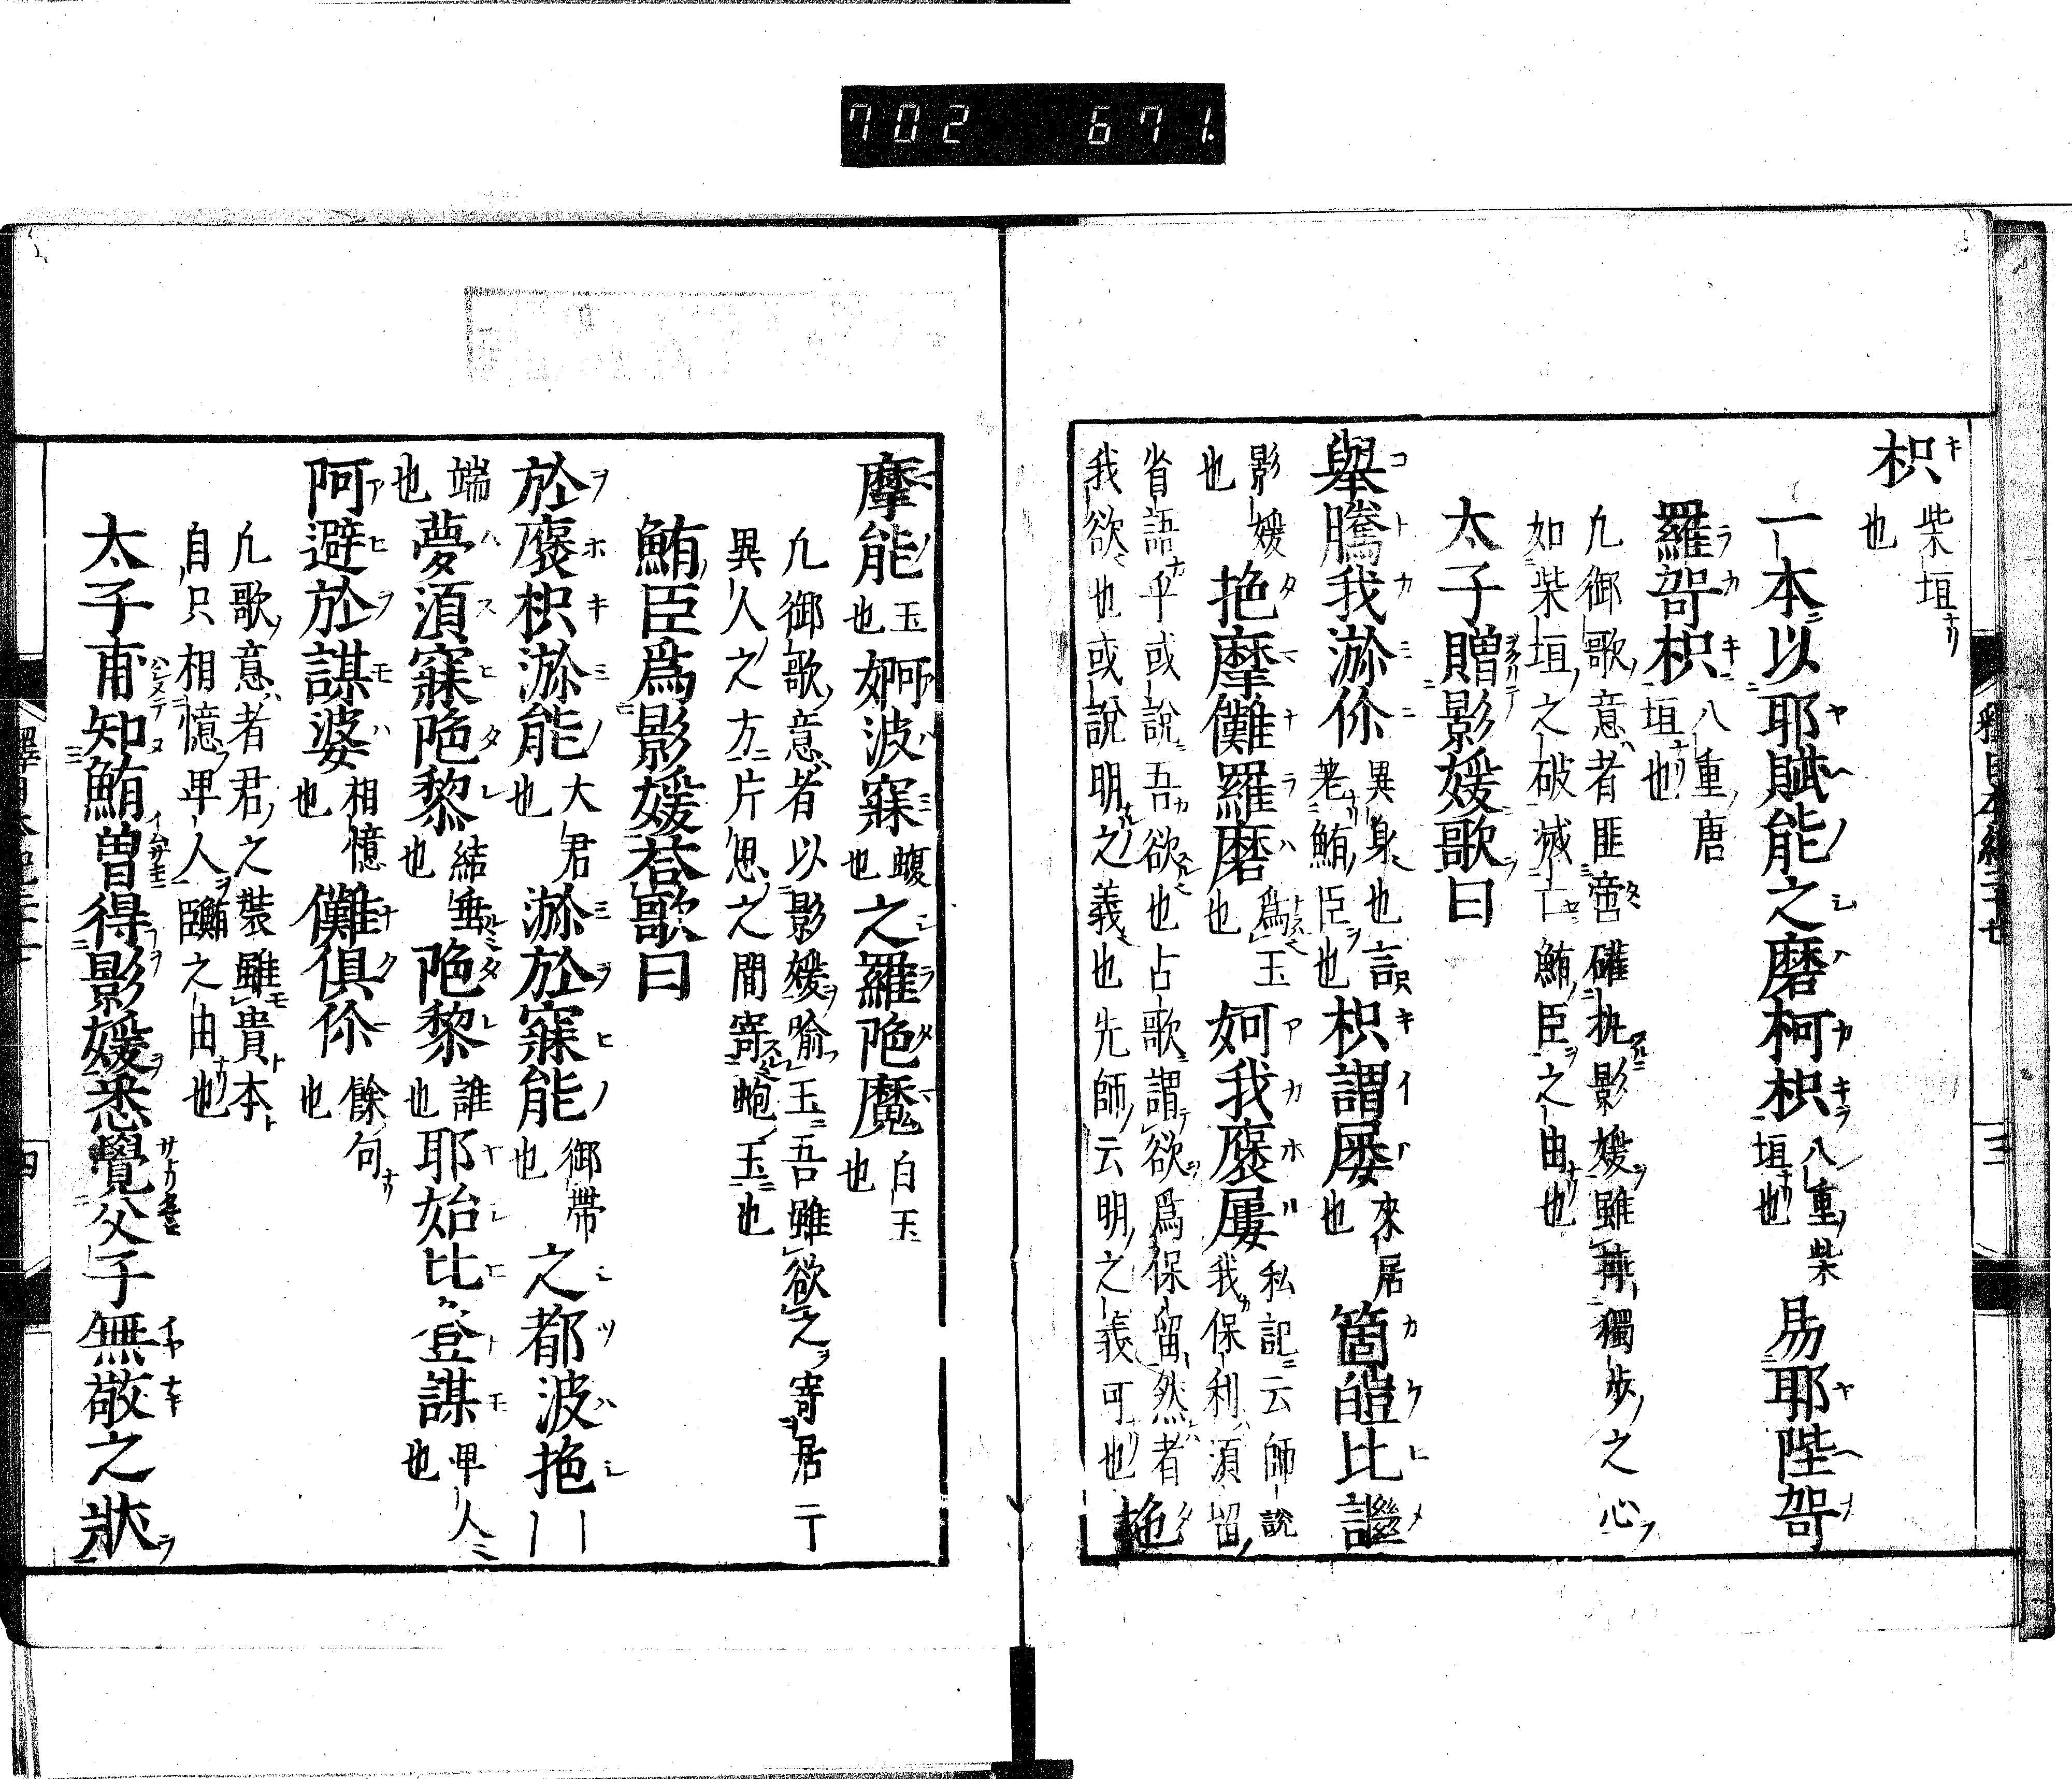 702 671
枳 柴垣也
一本以耶賦能之磨柯枳 八重柴垣也 易耶陛哿
羅哿枳 八重唐垣也
凢御歌意者匪啻礭執影媛雖無獨歩之心
如柴垣之破滅亡鮪臣之由也
太子贈影媛歌曰
舉騰我瀰伱 異身也言老鮪臣也 枳謂屡 來居也 箇皚比謎
影媛也 㧱摩儺羅磨 爲玉也 婀我褒屢 私記云師説我保利湏留
省語乎或説吾欲也占歌謂欲爲保留然者
我欲也或説明之義也先師云明之義可也 㧱
摩能 玉也 婀波寐 蝮也 之羅陁魔 白玉也
凢御歌意者以影媛喻玉吾雖欲之寄居
異人之方片思之間寄鮑玉也
鮪臣爲影媛荅歌曰
於褒枳瀰能 大君也 瀰於寐能 御帶也 之都波㧱
端也 夢湏寐陁黎 結垂也 陁黎 誰也 耶始比登謀 甲人也
阿避於謀婆 相憶也 儺俱伱 餘句也
凢歌意者君之裝雖貴本
自只相憶甲人鮪臣之由也
太子甫知鮪曽得影媛悉覺父子無敬之狀